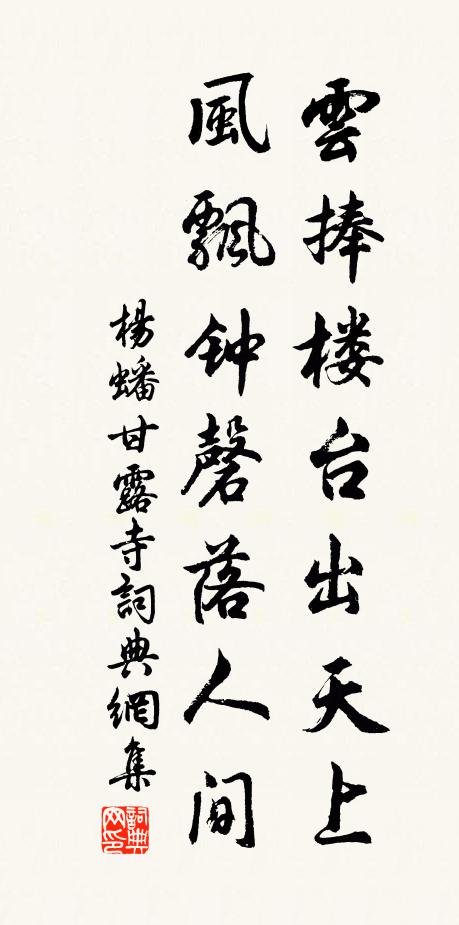 雲捧楼台出天上
風飄钟磬落人间
楊蟠甘露寺詞典網集
詞典网印